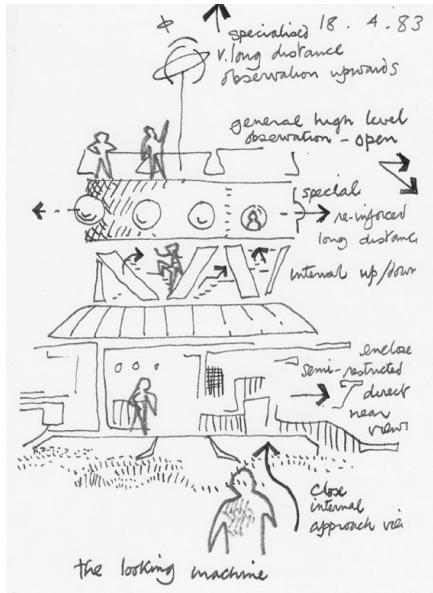 18.4.83
specialised
v. long distance
observation upwards
general high level
observation - open
special
re-inforced
long distanc
internal up/down
enclose
semi-restricted
direct
near
views
Close
internal
approach vie
the looking machine